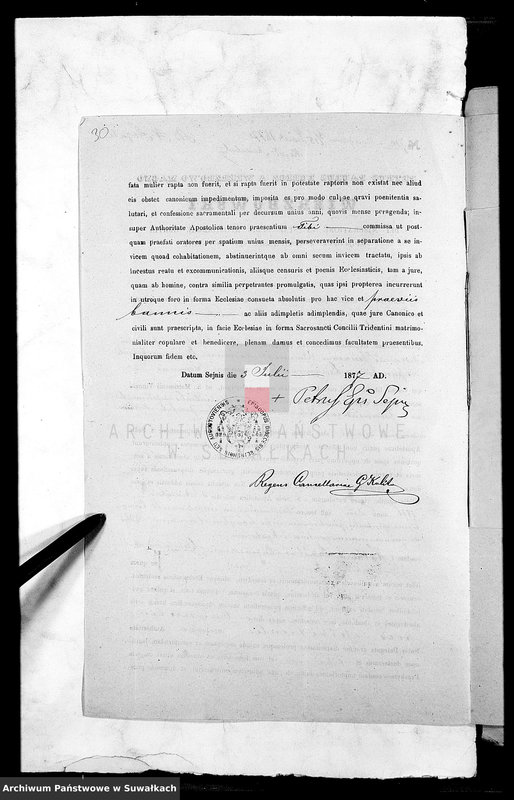 30
fata mulier rapta non fuerit, et si rapta fuerit in potestate raptoris non existat nec aliud
eis obstet canonicum impedimentum, imposita es pro modo culpae gravi poenitentia sa-
lutari, et confessione sacramentali per decursum unius anni, quovis mense peragenda; in-
super Authoritate Apostolica tenore praesentium Tibi commissa ut post-
quam praefati oratores per spatium unius mensis, perseveraverint in separatione a se in-
vicem quoad cohabitationem, abstinuerintque ab omni secum invicem tractatu, ipsis ab
incestus reatu et excommunicationis, aliisque censuris et poenis Ecclesiasticis, tam a jure,
quam ab homine, contra similia perpetrantes promulgatis, quas ipsi propterea incurrerunt
in utroque foro in forma Ecclesiae consueta absolutis pro hac vice et praeviis
bannis ac aliis adimpletis adimplendis, quae jure Canonico et
civili sunt praescripta, in facie Ecclesiae in forma Sacrosancti Concilii Tridentini matrimo-
nialiter copulare et benedicere, plenam damus et concedimus facultatem praesentibus.
Inquorum fidem etc.
Datum Sejnis die 3 Julii 1877 AD.
+ Petrus Eps Sejn
ARCHIWUM PAŃSTWOWE
W SUWAŁKACH
Regens Cancellariae
Archiwum Państwowe w Suwałkach